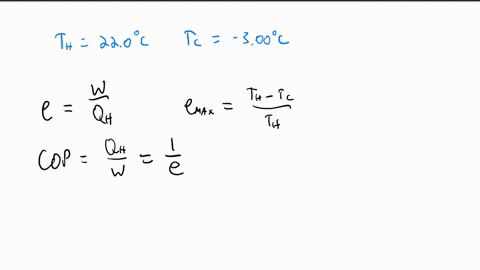 T_H = 22.0°C    T_C = -3.00°C
e = W/Q_H    e_MAX = (T_H - T_C)/T_H
COP = Q_H/W = 1/e